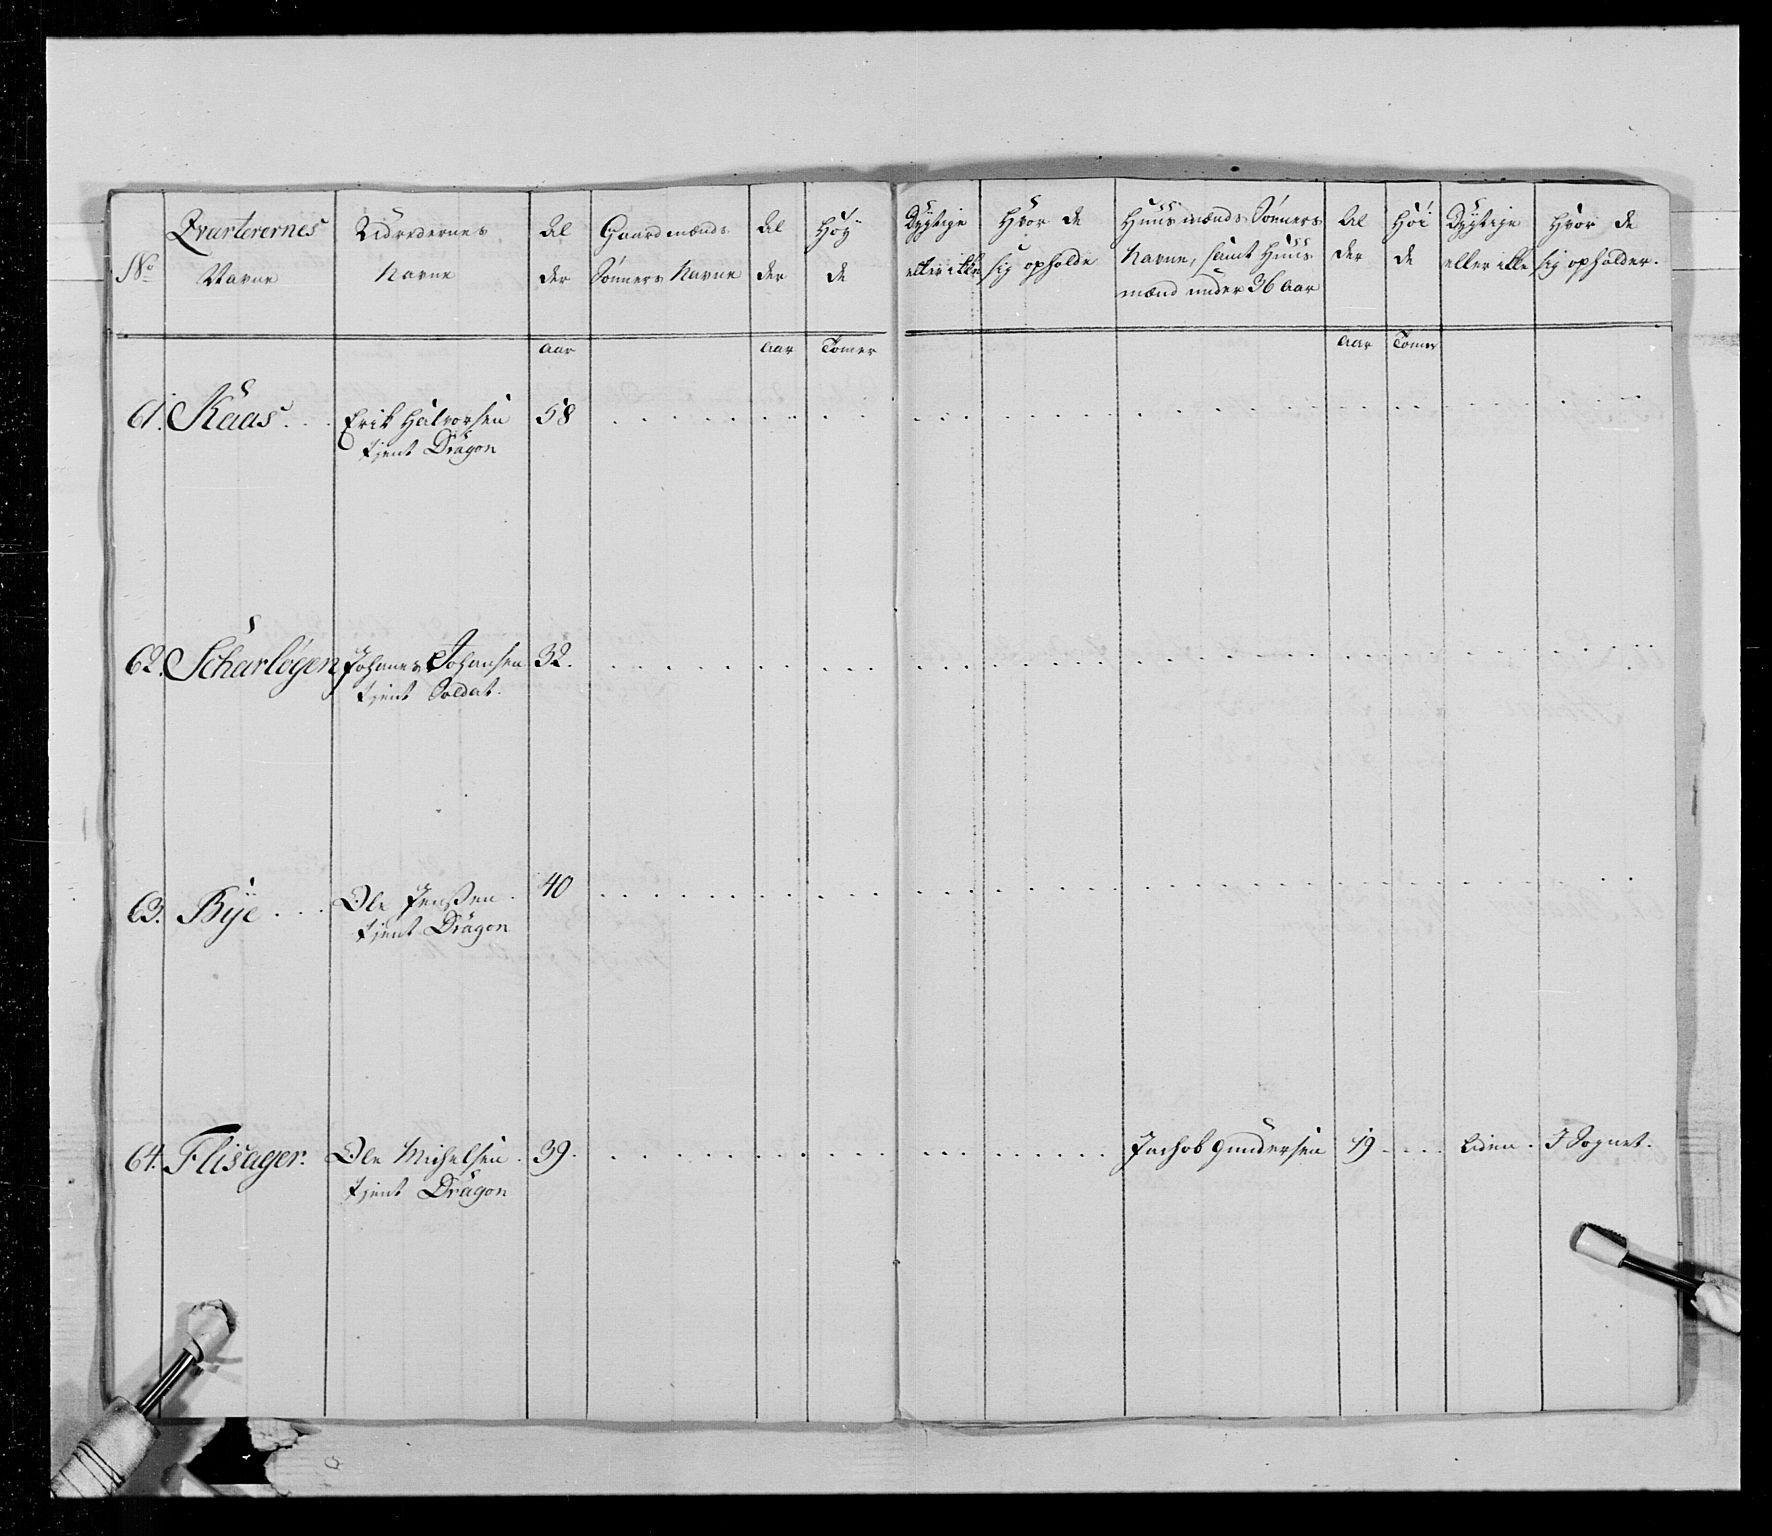 No
Qvarterernes
Navne
Beboernes
Navne
Al
der
Gaardmænds
Sønners Navne
Al
der
Høy
de
Dygtige
eller ikke
Hvor de
sig opholde
Huusmænds Sønners
Navne, samt Huus
mænd under 36 Aar
Al
der
Høi
de
Dygtige
eller ikke
Hvor de
sig opholder.
Aar
Aar
Tomer
Aar
Tomer
61. Kaas. Erik Halvorsen 58
tjent Dragon
62. Scharløgen Johanes Johansen 32.
tjent Soldat.
63. Bye Ole Jenssen. 40
tjent Dragon
64. Flisager. Ole Michelsen. 39. Jachob Gundersen 19 Liden. I Sognet.
tjent Dragon